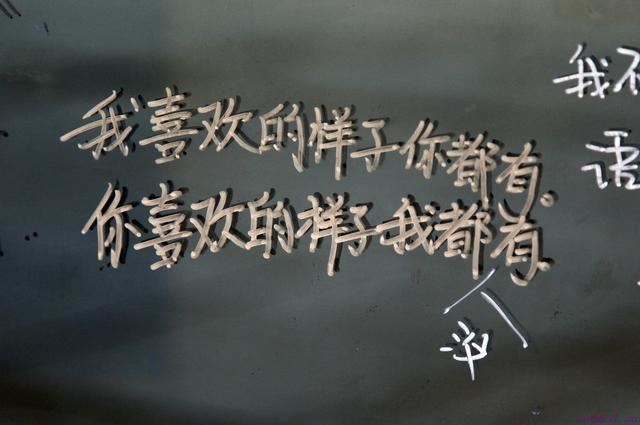 我喜欢的样子你都有.
你喜欢的样子我都有.
没
我不
话